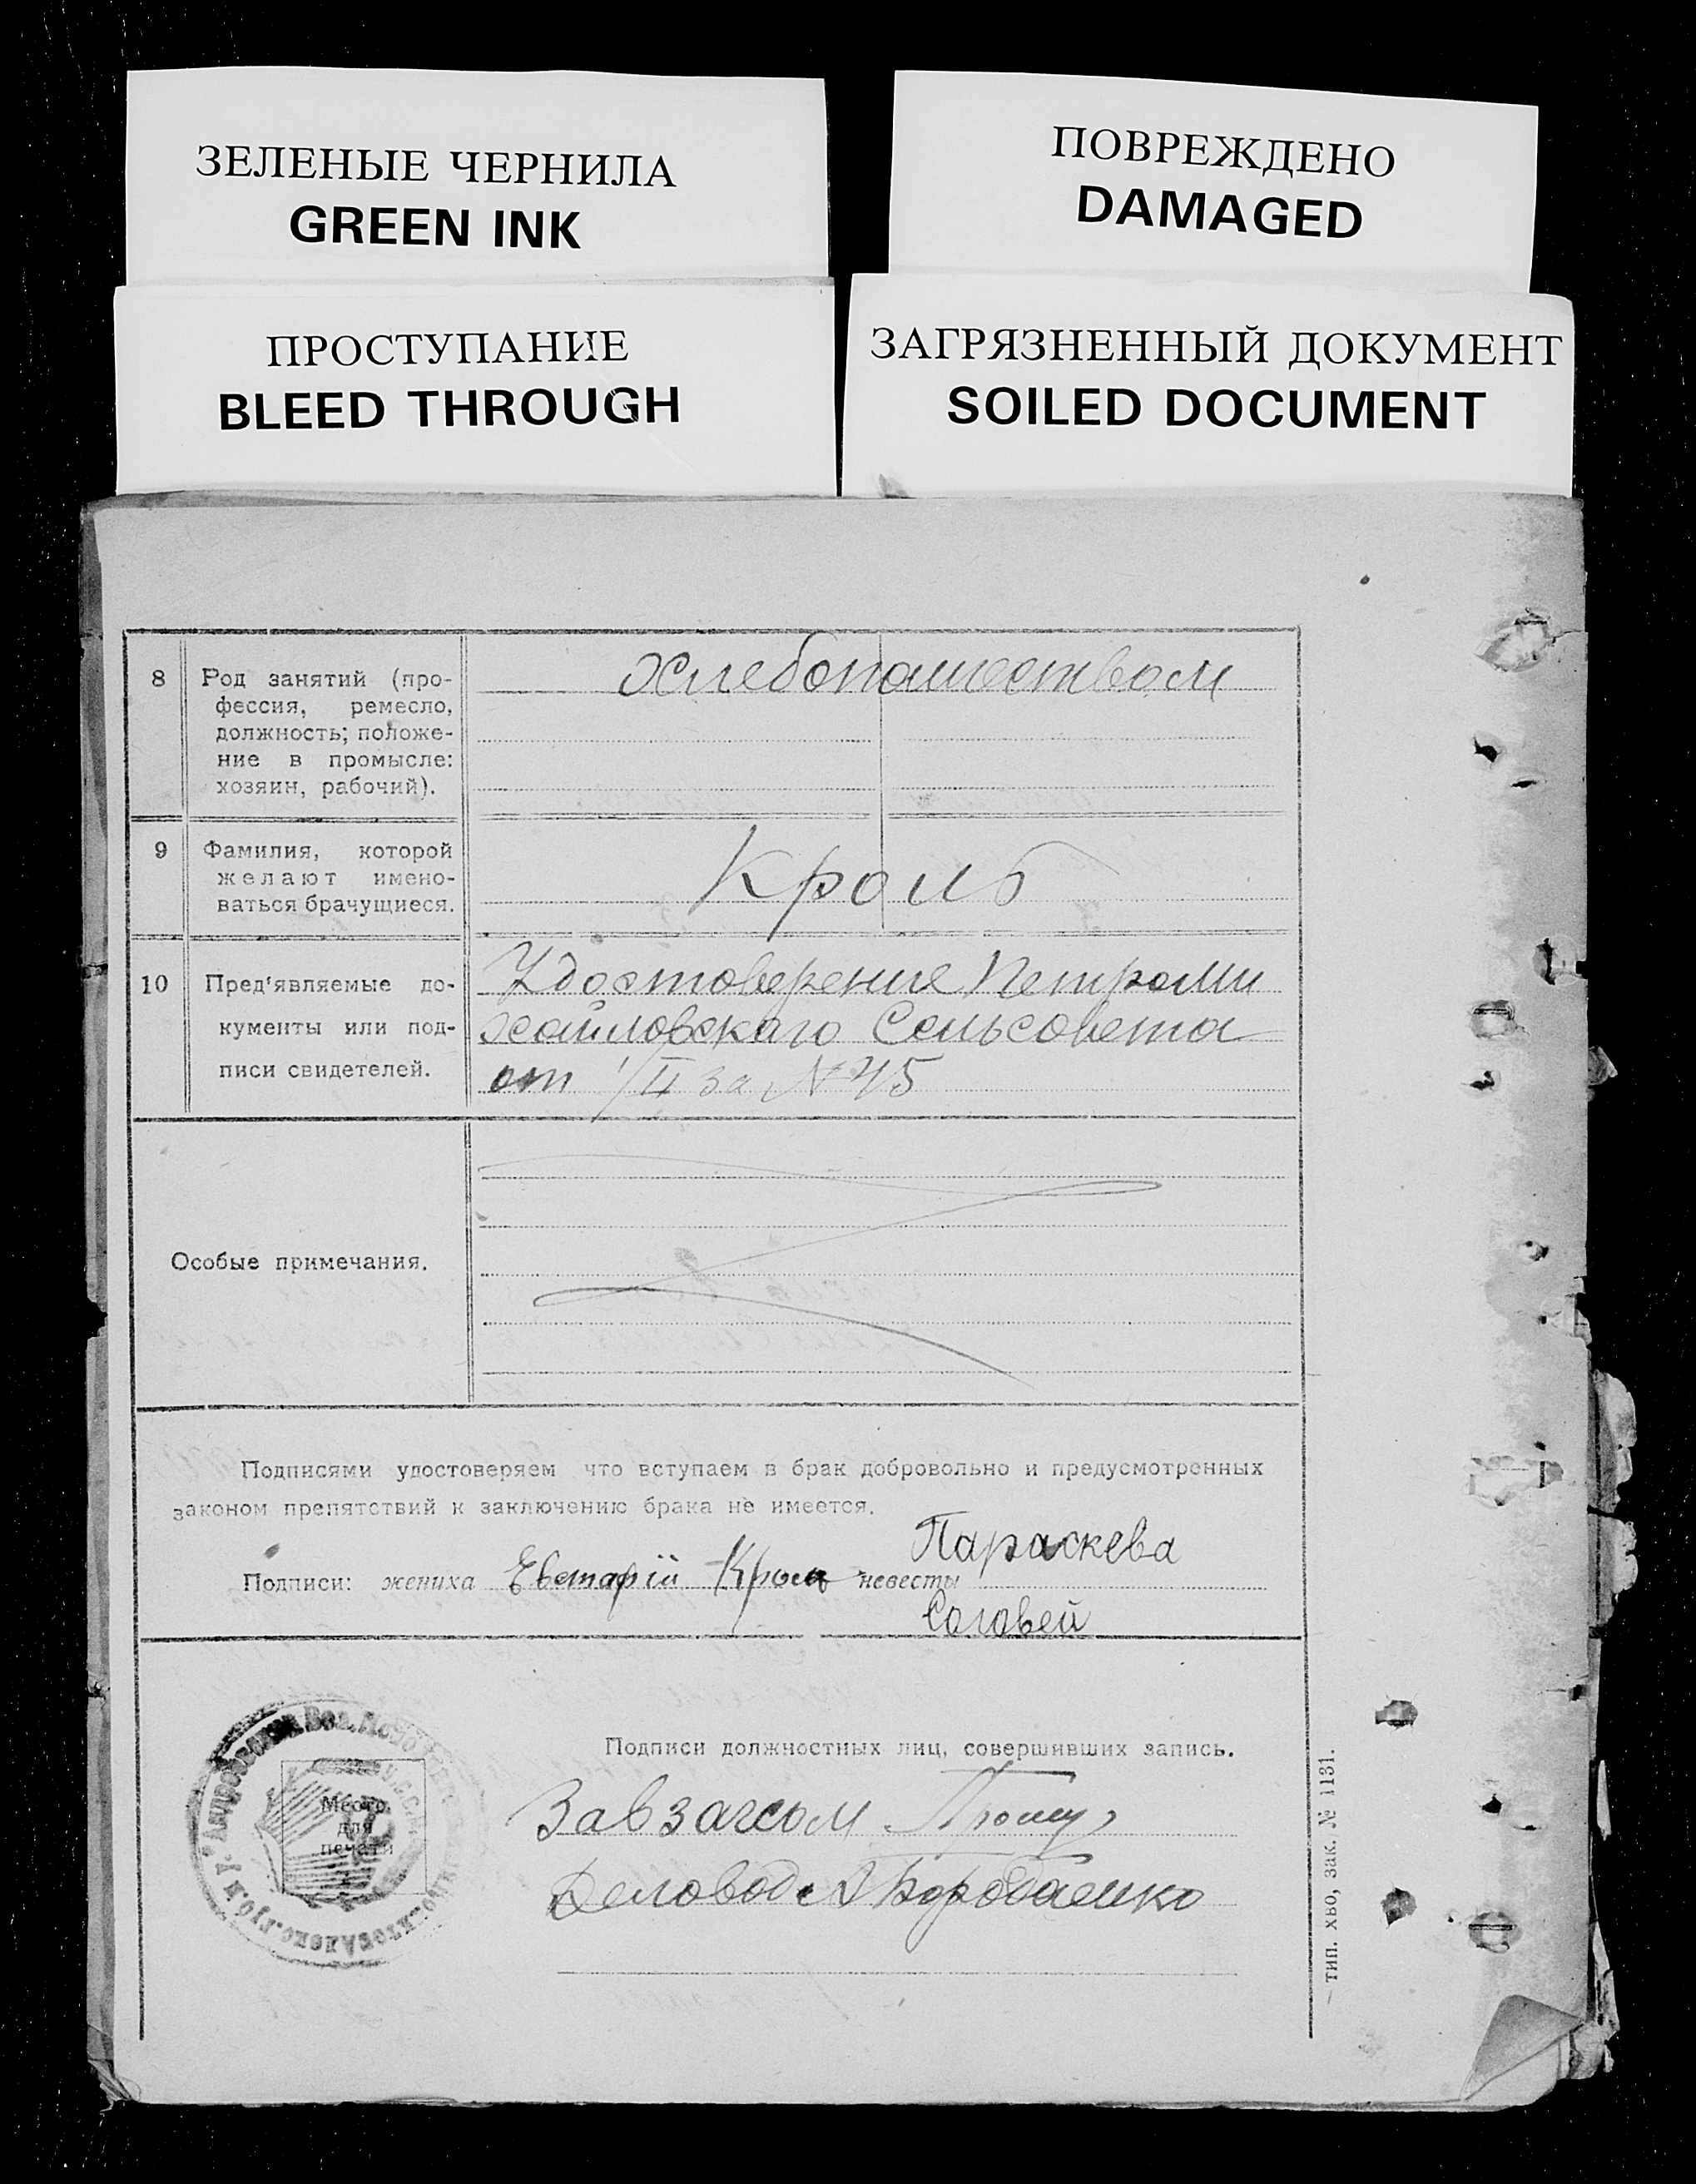 ЗЕЛЕНЫЕ ЧЕРНИЛА
GREEN INK
ПОВРЕЖДЕНО
DAMAGED
ПРОСТУПАНИЕ
BLEED THROUGH
ЗАГРЯЗНЕННЫЙ ДОКУМЕНТ
SOILED DOCUMENT
8
Род занятий (про-
фессия, ремесло,
должность; положе-
ние в промысле:
хозяин, рабочий).
Хлебопашеством
9
Фамилия, которой
желают имено-
ваться брачущиеся.
Кроль
10
Пред'являемые до-
кументы или под-
писи свидетелей.
Удостоверение Петроми
хайловскаго Сельсовета
от 1/II за №45
Особые примечания.
Подписями удостоверяем что вступаем в брак добровольно и предусмотренных
законом препятствий к заключению брака не имеется.
Подписи: жениха Евстафій Кроль невесты Параскева
Соловей
Подписи должностных лиц, совершивших запись.
Место
для
печати
Завзагсом
Деловод
тип. ХВО, зак. № 1131.